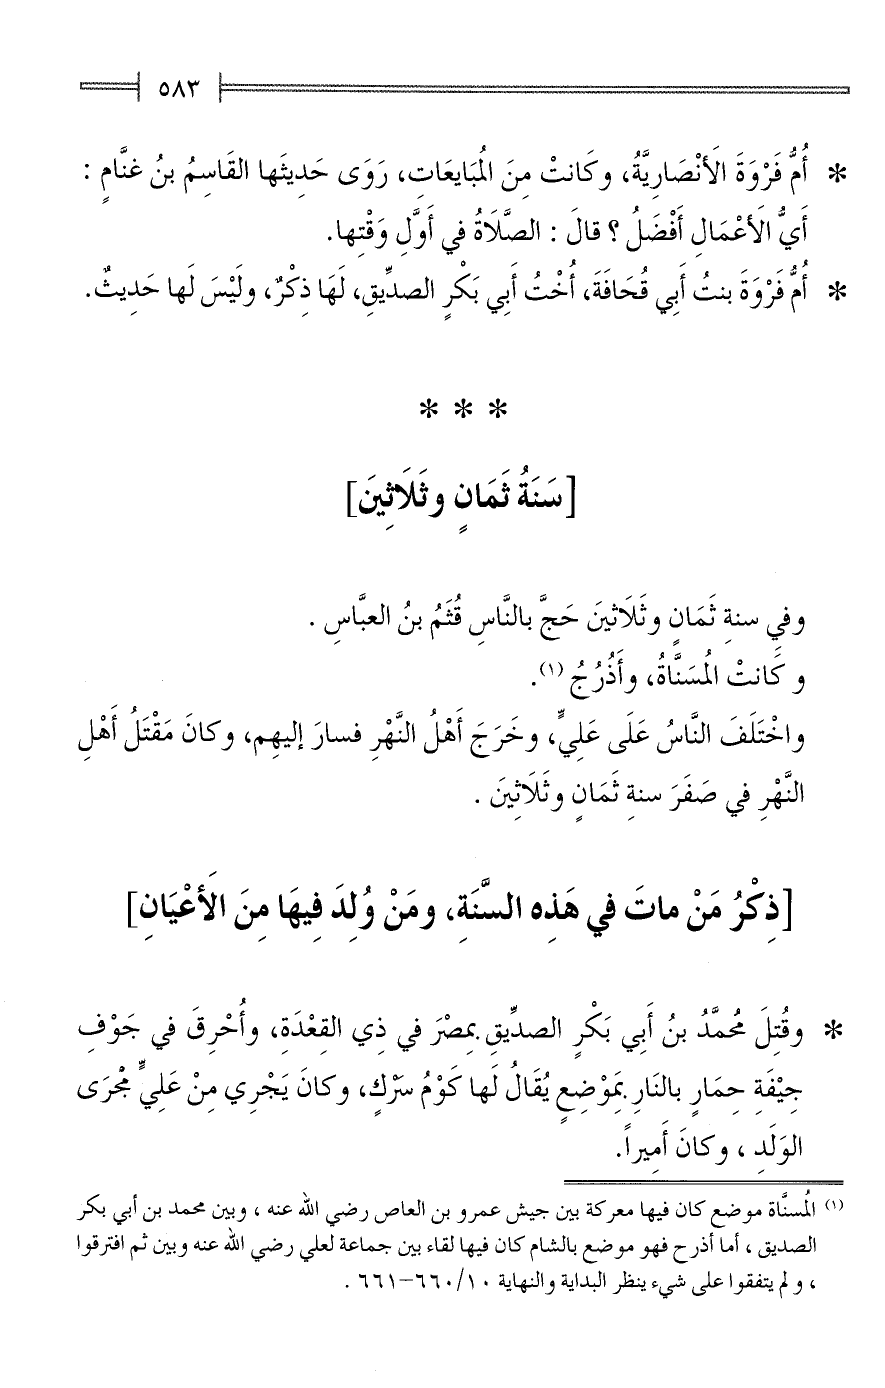 ٥٨٣
* أُمُّ فَرْوَةَ الأَنْصَارِيَّةُ، وكَانتْ مِنَ المُبَايعَاتِ، رَوَى حَدِيثَها القَاسِمُ بنُ غنَّامٍ :
أَيُّ الأَعْمَالِ أَفْضَلُ ؟ قالَ : الصَّلَاةُ في أَوَّلِ وَقْتِها.
* أُمُّ فَرْوَةَ بنتُ أَبي قُحَافَةَ، أُخْتُ أَبي بَكْرٍ الصدِّيقِ، لَهَا ذِكْرٌ، ولَيْسَ لَها حَدِيثٌ.
* * *
[سَنَةُ ثَمَانٍ وثَلَاثِينَ]
وفي سنةِ ثَمَانٍ وثَلَاثينَ حَجَّ بالنَّاسِ قُثَمُ بنُ العبَّاسِ .
وكَانتْ المُسَنَّاةُ، وأَذْرُجُ (١).
واخْتَلَفَ النَّاسُ عَلَى عَلِيٍّ، وخَرَجَ أَهْلُ النَّهْرِ فسارَ إليهِم، وكانَ مَقْتَلُ أَهْلِ
النَّهْرِ في صَفَرَ سنةِ ثَمَانٍ وثَلَاثِينَ .
[ذِكْرُ مَنْ ماتَ في هَذِه السَّنَةِ، ومَنْ وُلِدَ فِيهَا مِنَ الأَعْيَانِ]
* وقُتِلَ مُحمَّدُ بنُ أَبي بَكْرٍ الصدِّيقِ بمِصْرَ في ذِي القِعْدَةِ، وأُحْرِقَ في جَوْفِ
جِيْفَةِ حِمَارٍ بالنَارِ بمَوْضِعٍ يُقَالُ لَها كَوْمُ سَرْكٍ، وكانَ يَجْرِي مِنْ عَلِيٍّ مَجْرَى
الوَلَدِ ، وكانَ أَمِيراً.
(١) المُسنَّاة موضع كان فيها معركة بين جيش عمرو بن العاص رضي الله عنه ، وبين محمد بن أبي بكر
الصديق ، أما أذرح فهو موضع بالشام كان فيها لقاء بين جماعة لعلي رضي الله عنه وبين ثم افترقوا
، ولم يتفقوا على شيء ينظر البداية والنهاية ١٠/ ٦٦٠–٦٦١ .